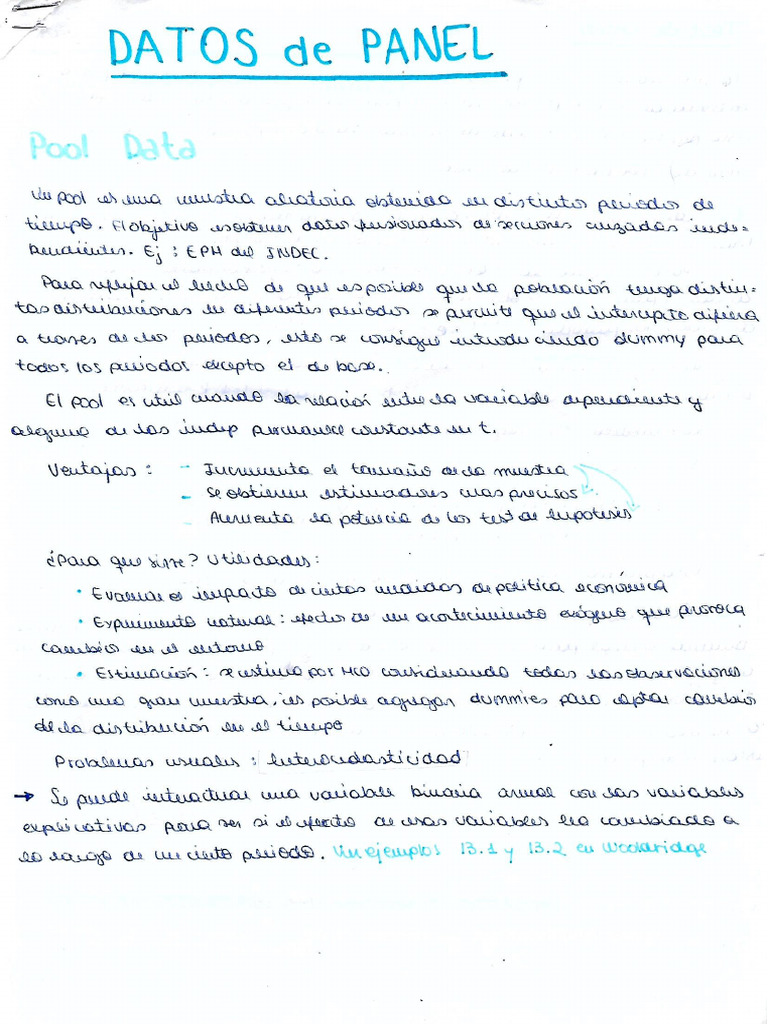 DATOS de PANEL
Pool Data
Un pool es una muestra aleatoria obtenida en distintos periodos de
tiempo. El objetivo es obtener datos fusionados de secciones cruzadas inde-
pendientes. Ej: EPH del INDEC.
Para reflejar el hecho de que es posible que la población tenga distin-
tas distribuciones en diferentes periodos se permite que el intercepto difiera
a traves de los periodos, esto se consigue introduciendo dummy para
todos los periodos excepto el de base.
El pool es util cuando la relación entre la variable dependiente y
alguna de las indep permanece constante en t.
Ventajas: - Incrementa el tamaño de la muestra
- Se obtienen estimadores mas precisos
- Aumenta la potencia de los test de hipotesis
¿Para que sirve? Utilidades:
• Evaluar el impacto de ciertas medidas de politica económica
• Experimento natural: efectos de un acontecimiento exógeno que provoca
cambios en el entorno
• Estimación: se estima por MCO considerando todas las observaciones
como una gran muestra, es posible agregar dummies para captar cambios
de la distribución en el tiempo
Problemas usuales: heterocedasticidad
→ Se puede interactuar una variable binaria anual con las variables
explicativas para ver si el efecto de esas variables ha cambiado a
lo largo de un cierto periodo. Ver ejemplos 13.1 y 13.2 en Wooldridge